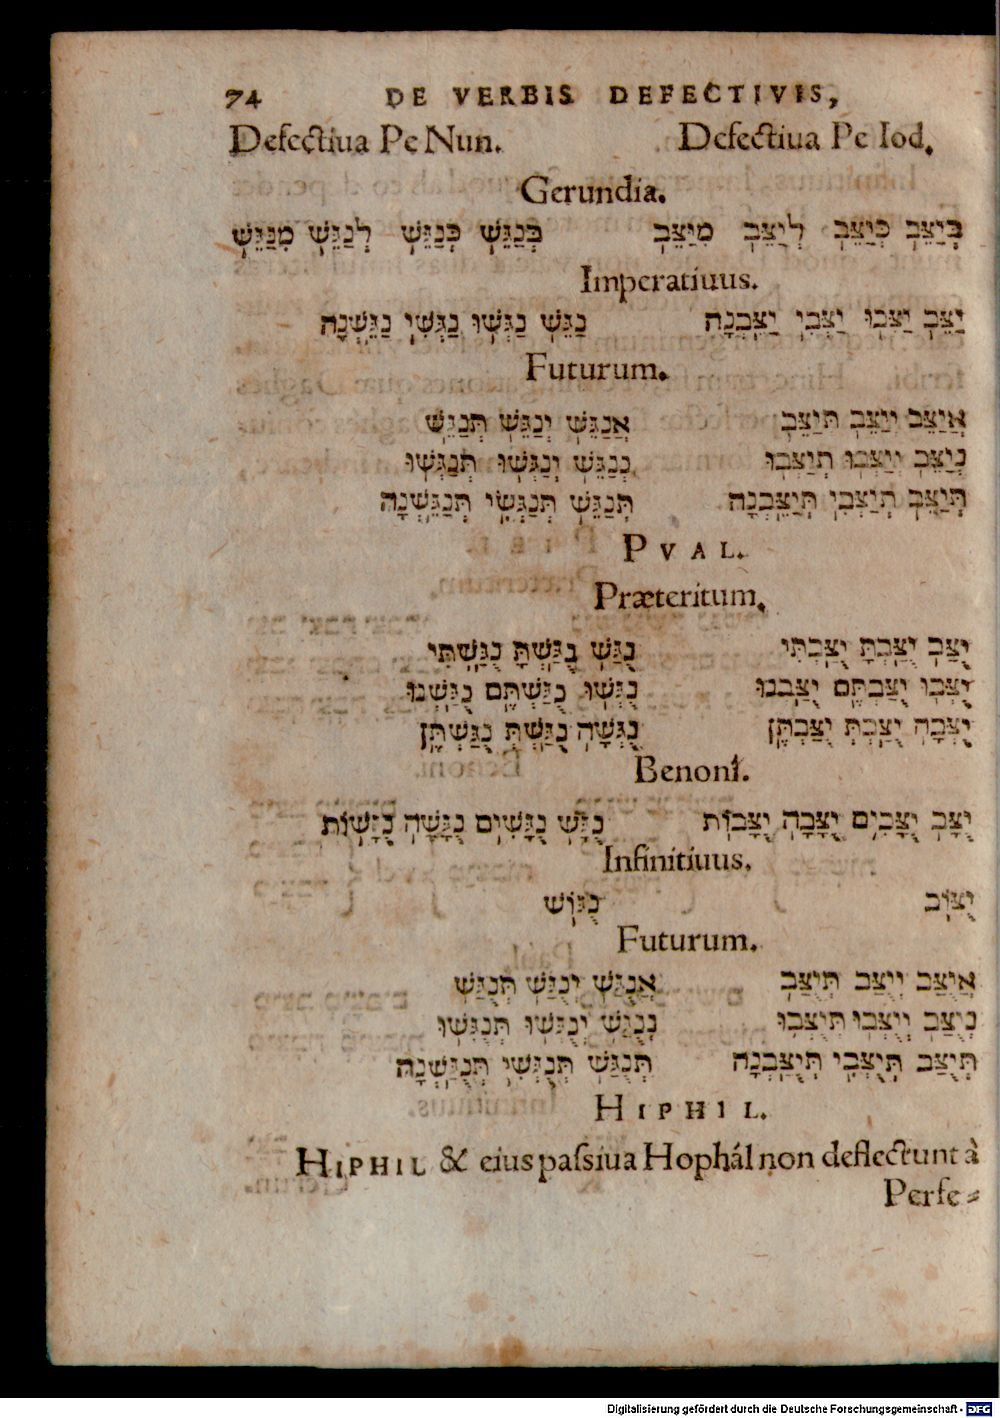 74 DE VERBIS DEFECTIVIS,
Defectiua Pe Nun. Defectiua Pe Iod.
Gerundia.
בְּיַצֵּב כְּיַצֵּב לְיַצֵּב מִיַּצֵּב בְּנַגֵּשׁ כְּנַגֵּשׁ לְנַגֵּשׁ מִנַּגֵּשׁ
Imperatiuus.
יַצֵּב יַצְּבוּ יַצְּבִי יַצֵּבְנָה נַגֵּשׁ נַגְּשׁוּ נַגְּשִׁי נַגֵּשְׁנָה
Futurum.
אֲיַצֵּב יְיַצֵּב תְּיַצֵּב אֲנַגֵּשׁ יְנַגֵּשׁ תְּנַגֵּשׁ
נְיַצֵּב יְיַצְּבוּ תְּיַצְּבוּ נְנַגֵּשׁ יְנַגְּשׁוּ תְּנַגְּשׁוּ
תְּיַצֵּב תְּיַצְּבִי תְּיַצֵּבְנָה תְּנַגֵּשׁ תְּנַגְּשִׁי תְּנַגֵּשְׁנָה
PVAL.
Præteritum.
יֻצַּב יֻצַּבְתָּ יֻצַּבְתִּי נֻגַּשׁ נֻגַּשְׁתָּ נֻגַּשְׁתִּי
יֻצְּבוּ יֻצַּבְתֶּם יֻצַּבְנוּ נֻגְּשׁוּ נֻגַּשְׁתֶּם נֻגַּשְׁנוּ
יֻצְּבָה יֻצַּבְתְּ יֻצַּבְתֶּן נֻגְּשָׁה נֻגַּשְׁתְּ נֻגַּשְׁתֶּן
Benoni.
יֻצָּב יֻצָּבִים יֻצָּבָה יֻצָּבוֹת נֻגָּשׁ נֻגָּשִׁים נֻגָּשָׁה נֻגָּשׁוֹת
Infinitiuus.
יֻצּוֹב נֻגּוֹשׁ
Futurum.
אֲיֻצַּב יְיֻצַּב תְּיֻצַּב אֲנֻגַּשׁ יְנֻגַּשׁ תְּנֻגַּשׁ
נְיֻצַּב יְיֻצְּבוּ תְּיֻצְּבוּ נְנֻגַּשׁ יְנֻגְּשׁוּ תְּנֻגְּשׁוּ
תְּיֻצַּב תְּיֻצְּבִי תְּיֻצַּבְנָה תְּנֻגַּשׁ תְּנֻגְּשִׁי תְּנֻגַּשְׁנָה
HIPHIL.
HIPHIL & eius paſsiua Hophál non deflectunt à
Perfe⸗
Digitalisierung gefördert durch die Deutsche Forschungsgemeinschaft - DFG